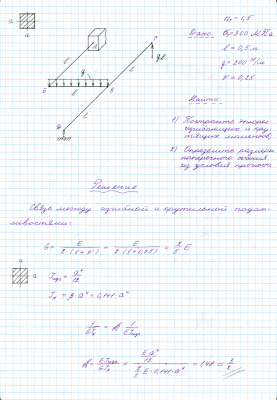 a
a
n_T = 1,5
Дано:
σ_T = 300 МПа
l = 0,5 м
q = 200 Н/м
ν = 0,25
q
l
l
l
l
ql
B
Найти:
1) Построить эпюры
изгибающих и кру-
тящих моментов;
2) Определить размеры
поперечного сечения
из условия прочности
Решение
Связь между изгибной и крутильной подат-
ливостями:
G = E / 2·(1+ν) = E / 2·(1+0,25) = 2/5 E
a
a
J = a⁴/12
J = β·a⁴ = 0,141·a⁴
= A
A = = 1,48 =